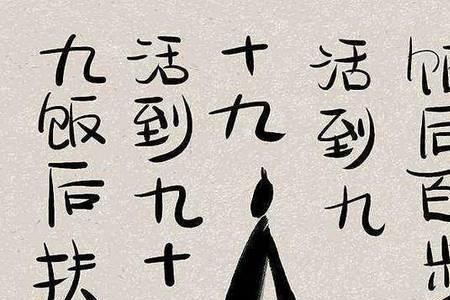 饭后百步
活到九
十九
活到九十
九饭后扶